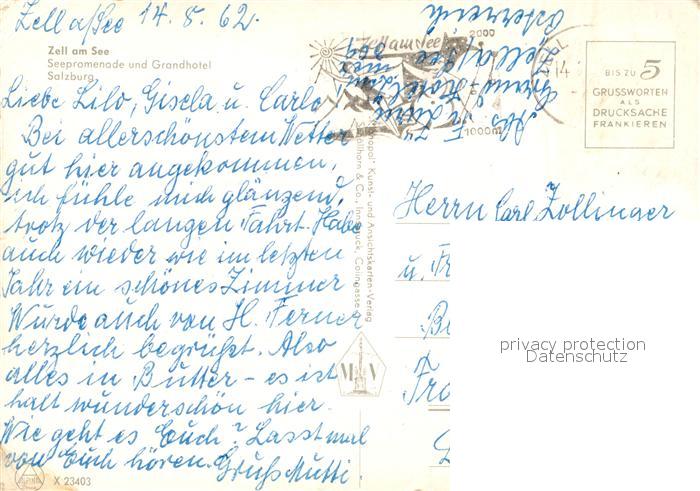 Zell a/See 14. 8. 62.
Zell am See
Seepromenade und Grandhotel
Salzburg
Liebe Lilo, Gisela u. Carlo
Bei allerschönstem Wetter
gut hier angekommen,
ich fühle mich glänzend,
trotz der langen Fahrt. Habe
auch wieder wie im letzten
Jahr ein schönes Zimmer
Wurde auch von H. Ferner
herzlich begrüßt. Also
alles in Butter - es ist
halt wunderschön hier.
Wie geht es Euch? Lasst mal
von Euch hören. Gruß Mutti.
X 23403
Zell am See
2000
1000m
Abs.
Grand Hotel
Zell a/See
Österreich
Monopol- Kunst- und Ansichtskarten-Verlag
& Co., Innsbruck, Colingasse
M V
BIS ZU 5
GRUSSWORTEN
ALS
DRUCKSACHE
FRANKIEREN
Herrn Carl Zollinger
u. Fr
privacy protection
Datenschutz